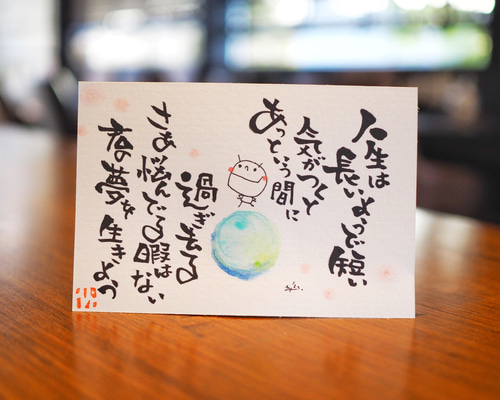 人生は
長いようで短い
気がつくと
あっという間に
過ぎ去る
さあ悩んでる暇はない
君の夢を生きよう